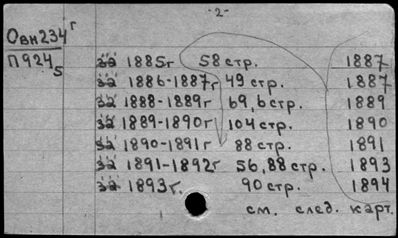 -2-
Овн234г
П924₅
за 1885г 58 стр. 1887
за 1886-1887г 49 стр. 1887
за 1888-1889г 69, 6 стр. 1889
за 1889-1890г 104 стр. 1890
за 1890-1891г 88 стр. 1891
за 1891-1892г 56, 88 стр. 1893
за 1893г. 90 стр. 1894
см. след. карт.